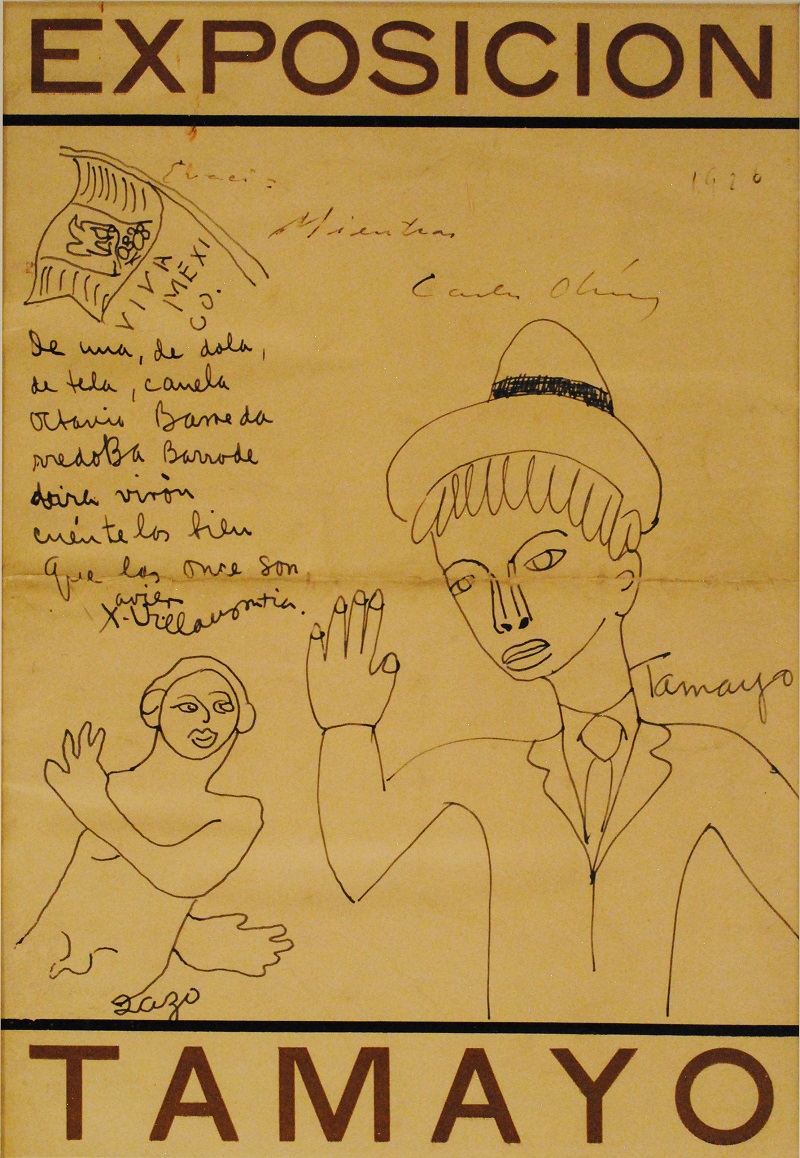 EXPOSICION
1926
Mientras
VIVA
MÉXI
CO.
De una, de dola,
de tela, canela
Octavio Barreda
rredoBa Barrode
vira virón
cuéntelos bien
que las once son
Xavier Villaurrutia.
Tamayo
Lazo
TAMAYO